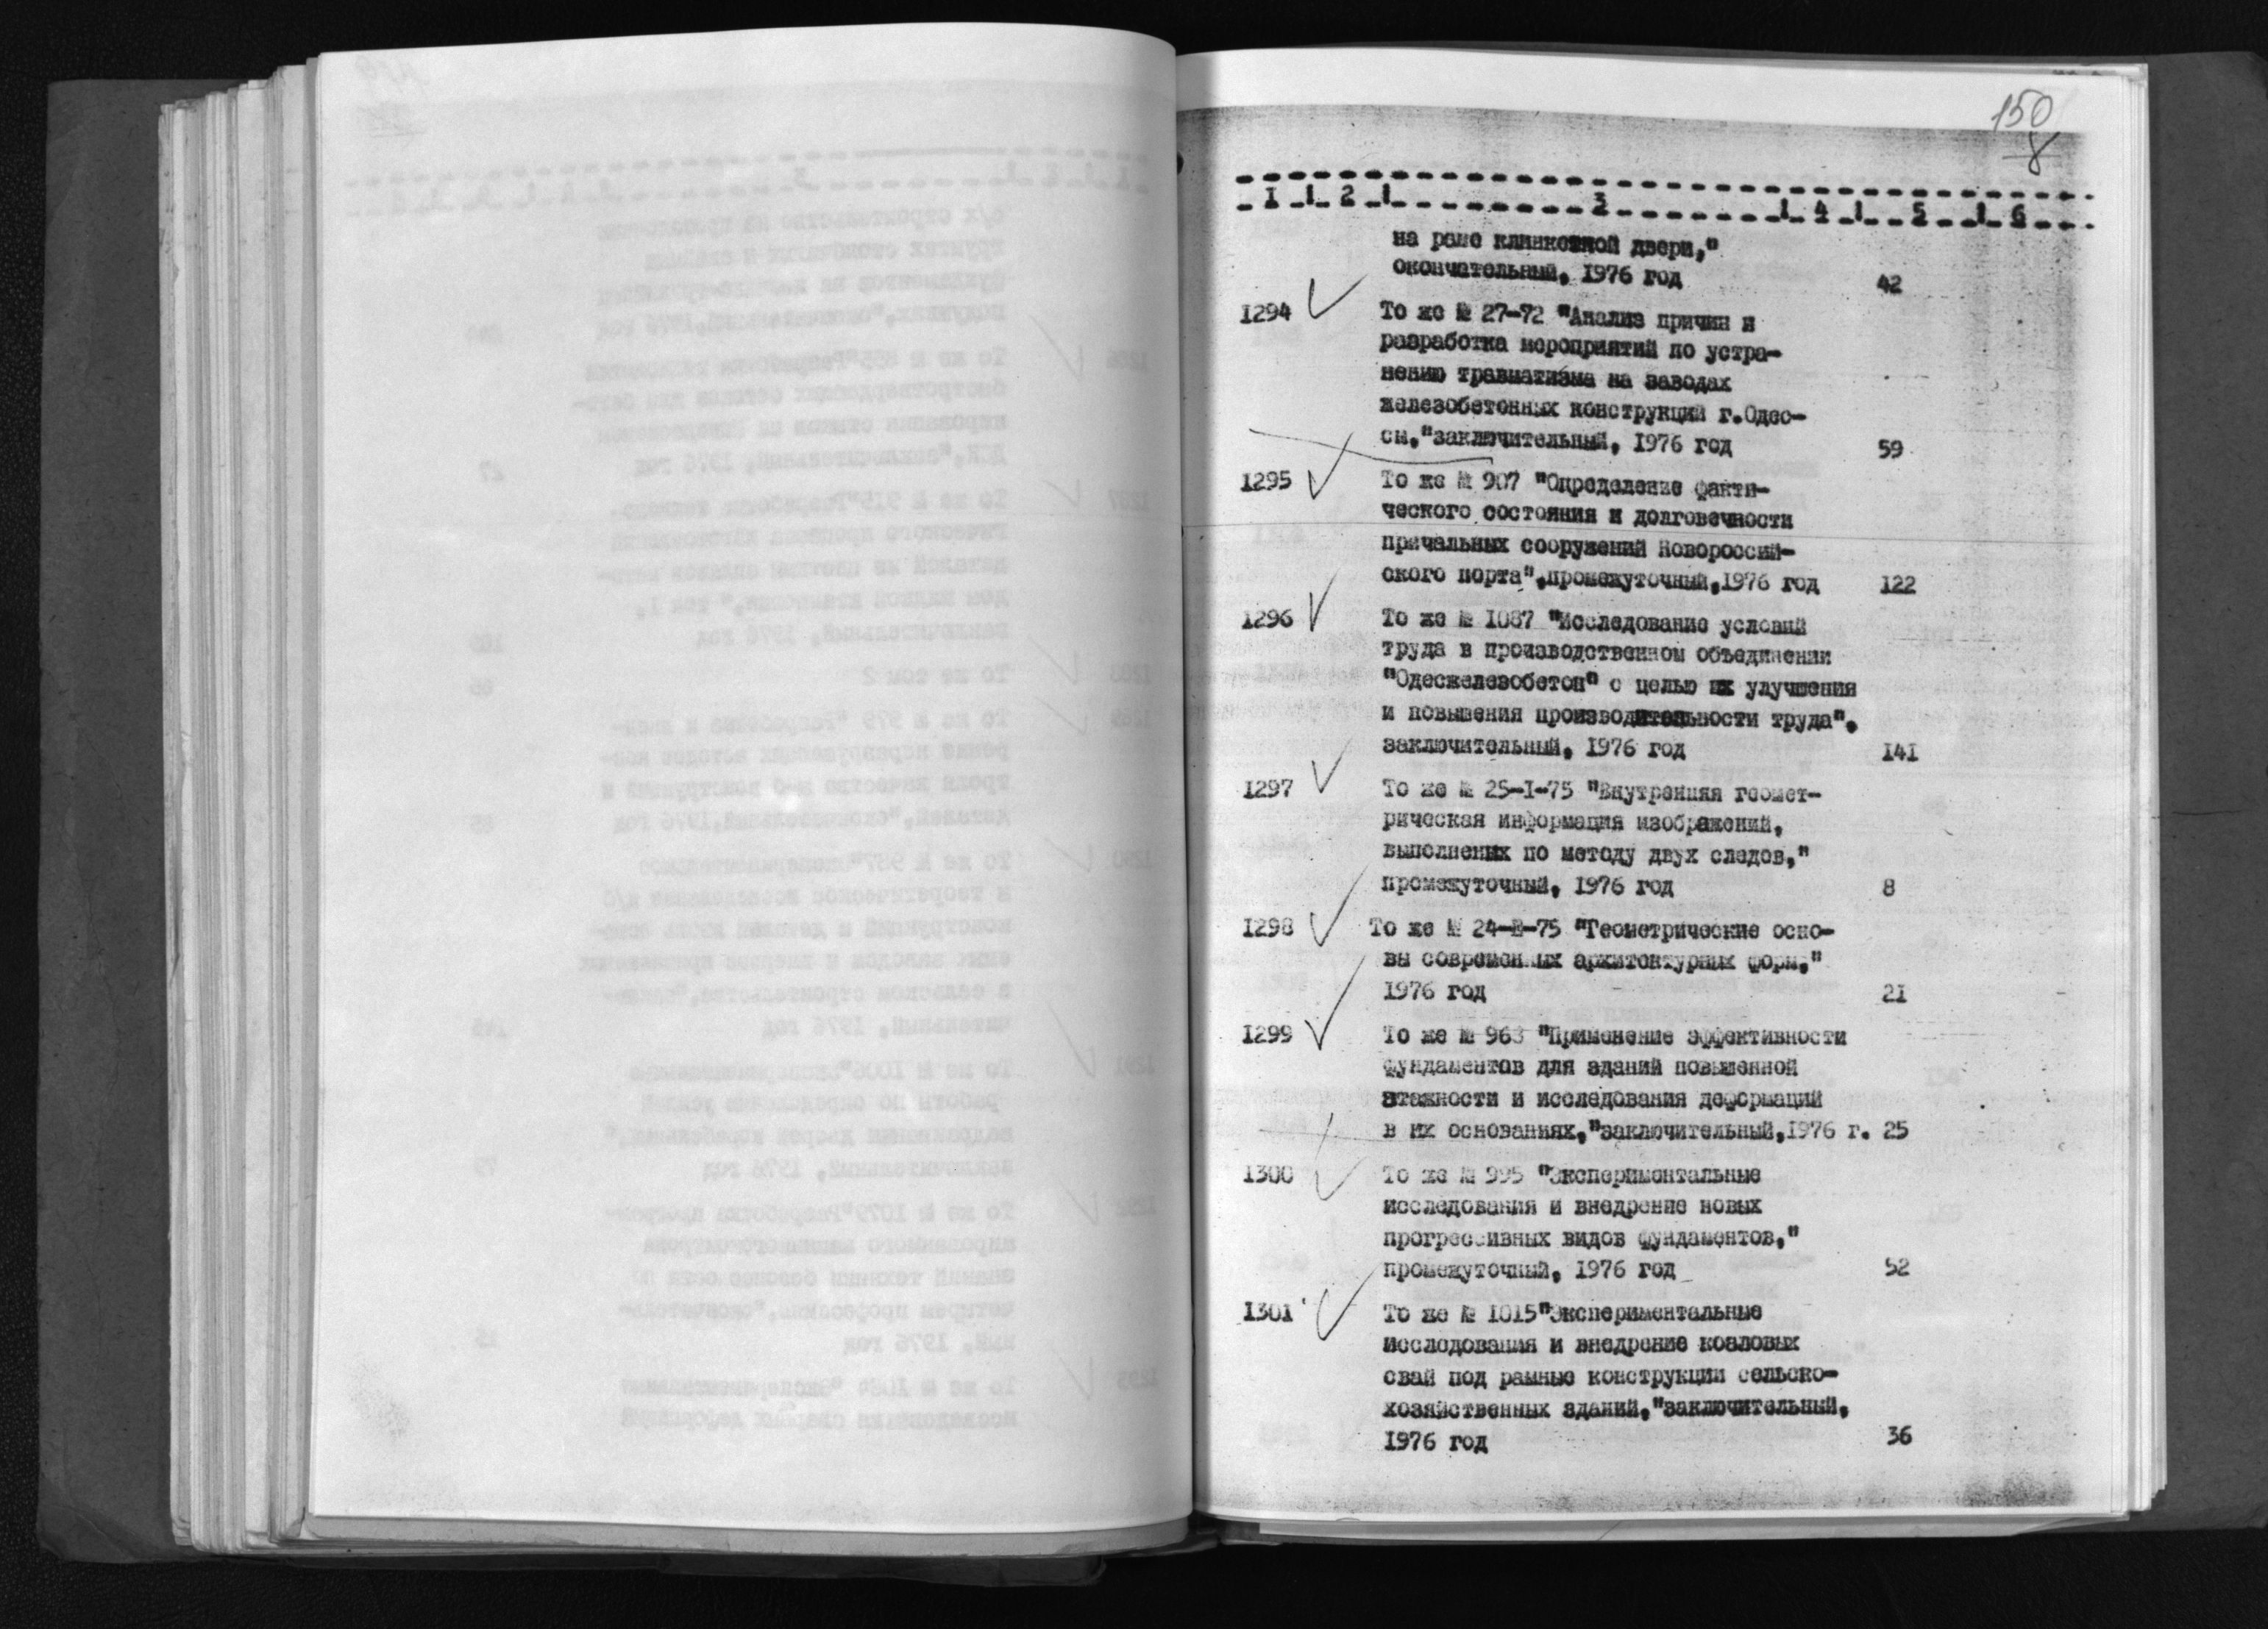 150
8
I 2 3 4 5 6
на раме клинкетной двери,"
окончательный, 1976 год 42
1294 То же № 27-72 "Анализ причин и
разработка мероприятий по устра-
нению травматизма на заводах
железобетонных конструкций г.Одес-
сы,"заключительный, 1976 год 59
1295 То же № 907 "Определение факти-
ческого состояния и долговечности
причальных сооружений Новороссий-
ского порта",промежуточный,1976 год 122
1296 То же № 1087 "Исследование условий
труда в производственном объединении
"Одесжелезобетон" с целью их улучшения
и повышения производительности труда",
заключительный, 1976 год 141
1297 То же № 25-I-75 "Внутренняя геомет-
рическая информация изображений,
выполненых по методу двух следов,"
промежуточный, 1976 год 8
1298 То же № 24- -75 "Геометрические осно-
вы современных архитектурных форм,"
1976 год 21
1299 То же № 963 "Применение эффективности
фундаментов для зданий повышенной
этажности и исследования деформаций
в их основаниях,"заключительный,1976 г. 25
1300 То же № 995 "Экспериментальные
исследования и внедрение новых
прогрессивных видов фундаментов,"
промежуточный, 1976 год 52
1301 То же № 1015"Экспериментальные
исследования и внедрение козловых
свай под рамные конструкции сельско-
хозяйственных зданий,"заключительный,
1976 год 36